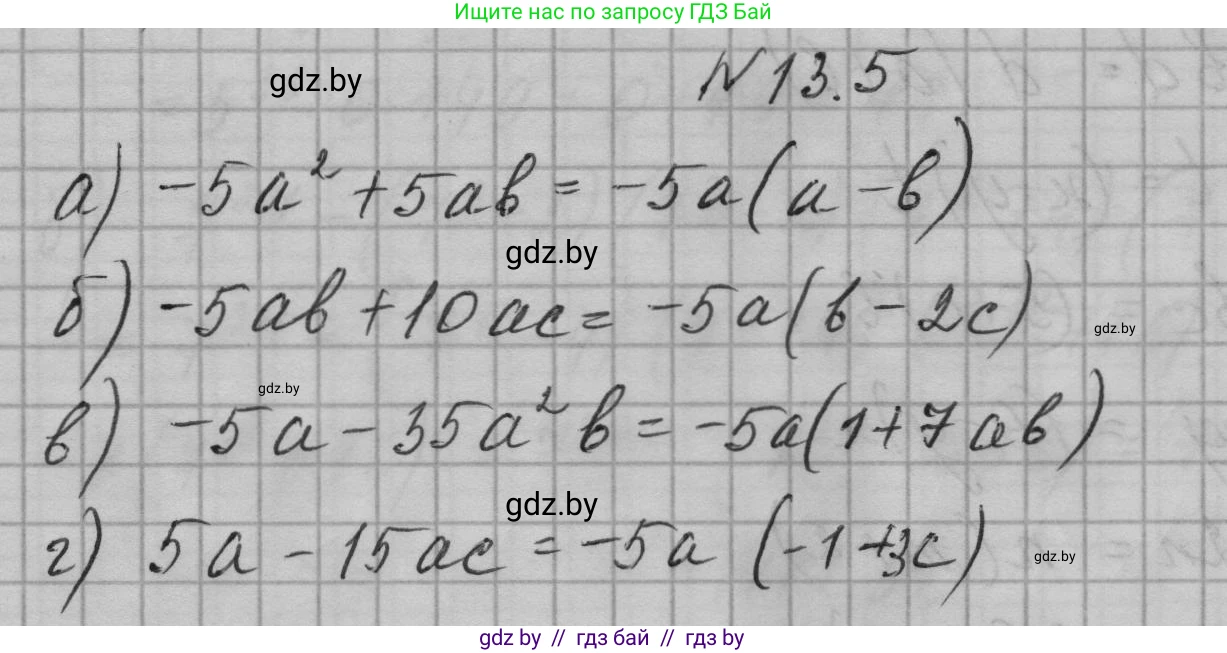 Ищите нас по запросу ГДЗ Бай
gdz.by
N 13.5
а) -5a² + 5ab = -5a(a - b)
gdz.by
б) -5ab + 10ac = -5a(b - 2c)
gdz.by
gdz.by
в) -5a - 35a²b = -5a(1 + 7ab)
gdz.by
г) 5a - 15ac = -5a (-1 + 3c)
gdz.by
gdz by // гдз бай // гдз by